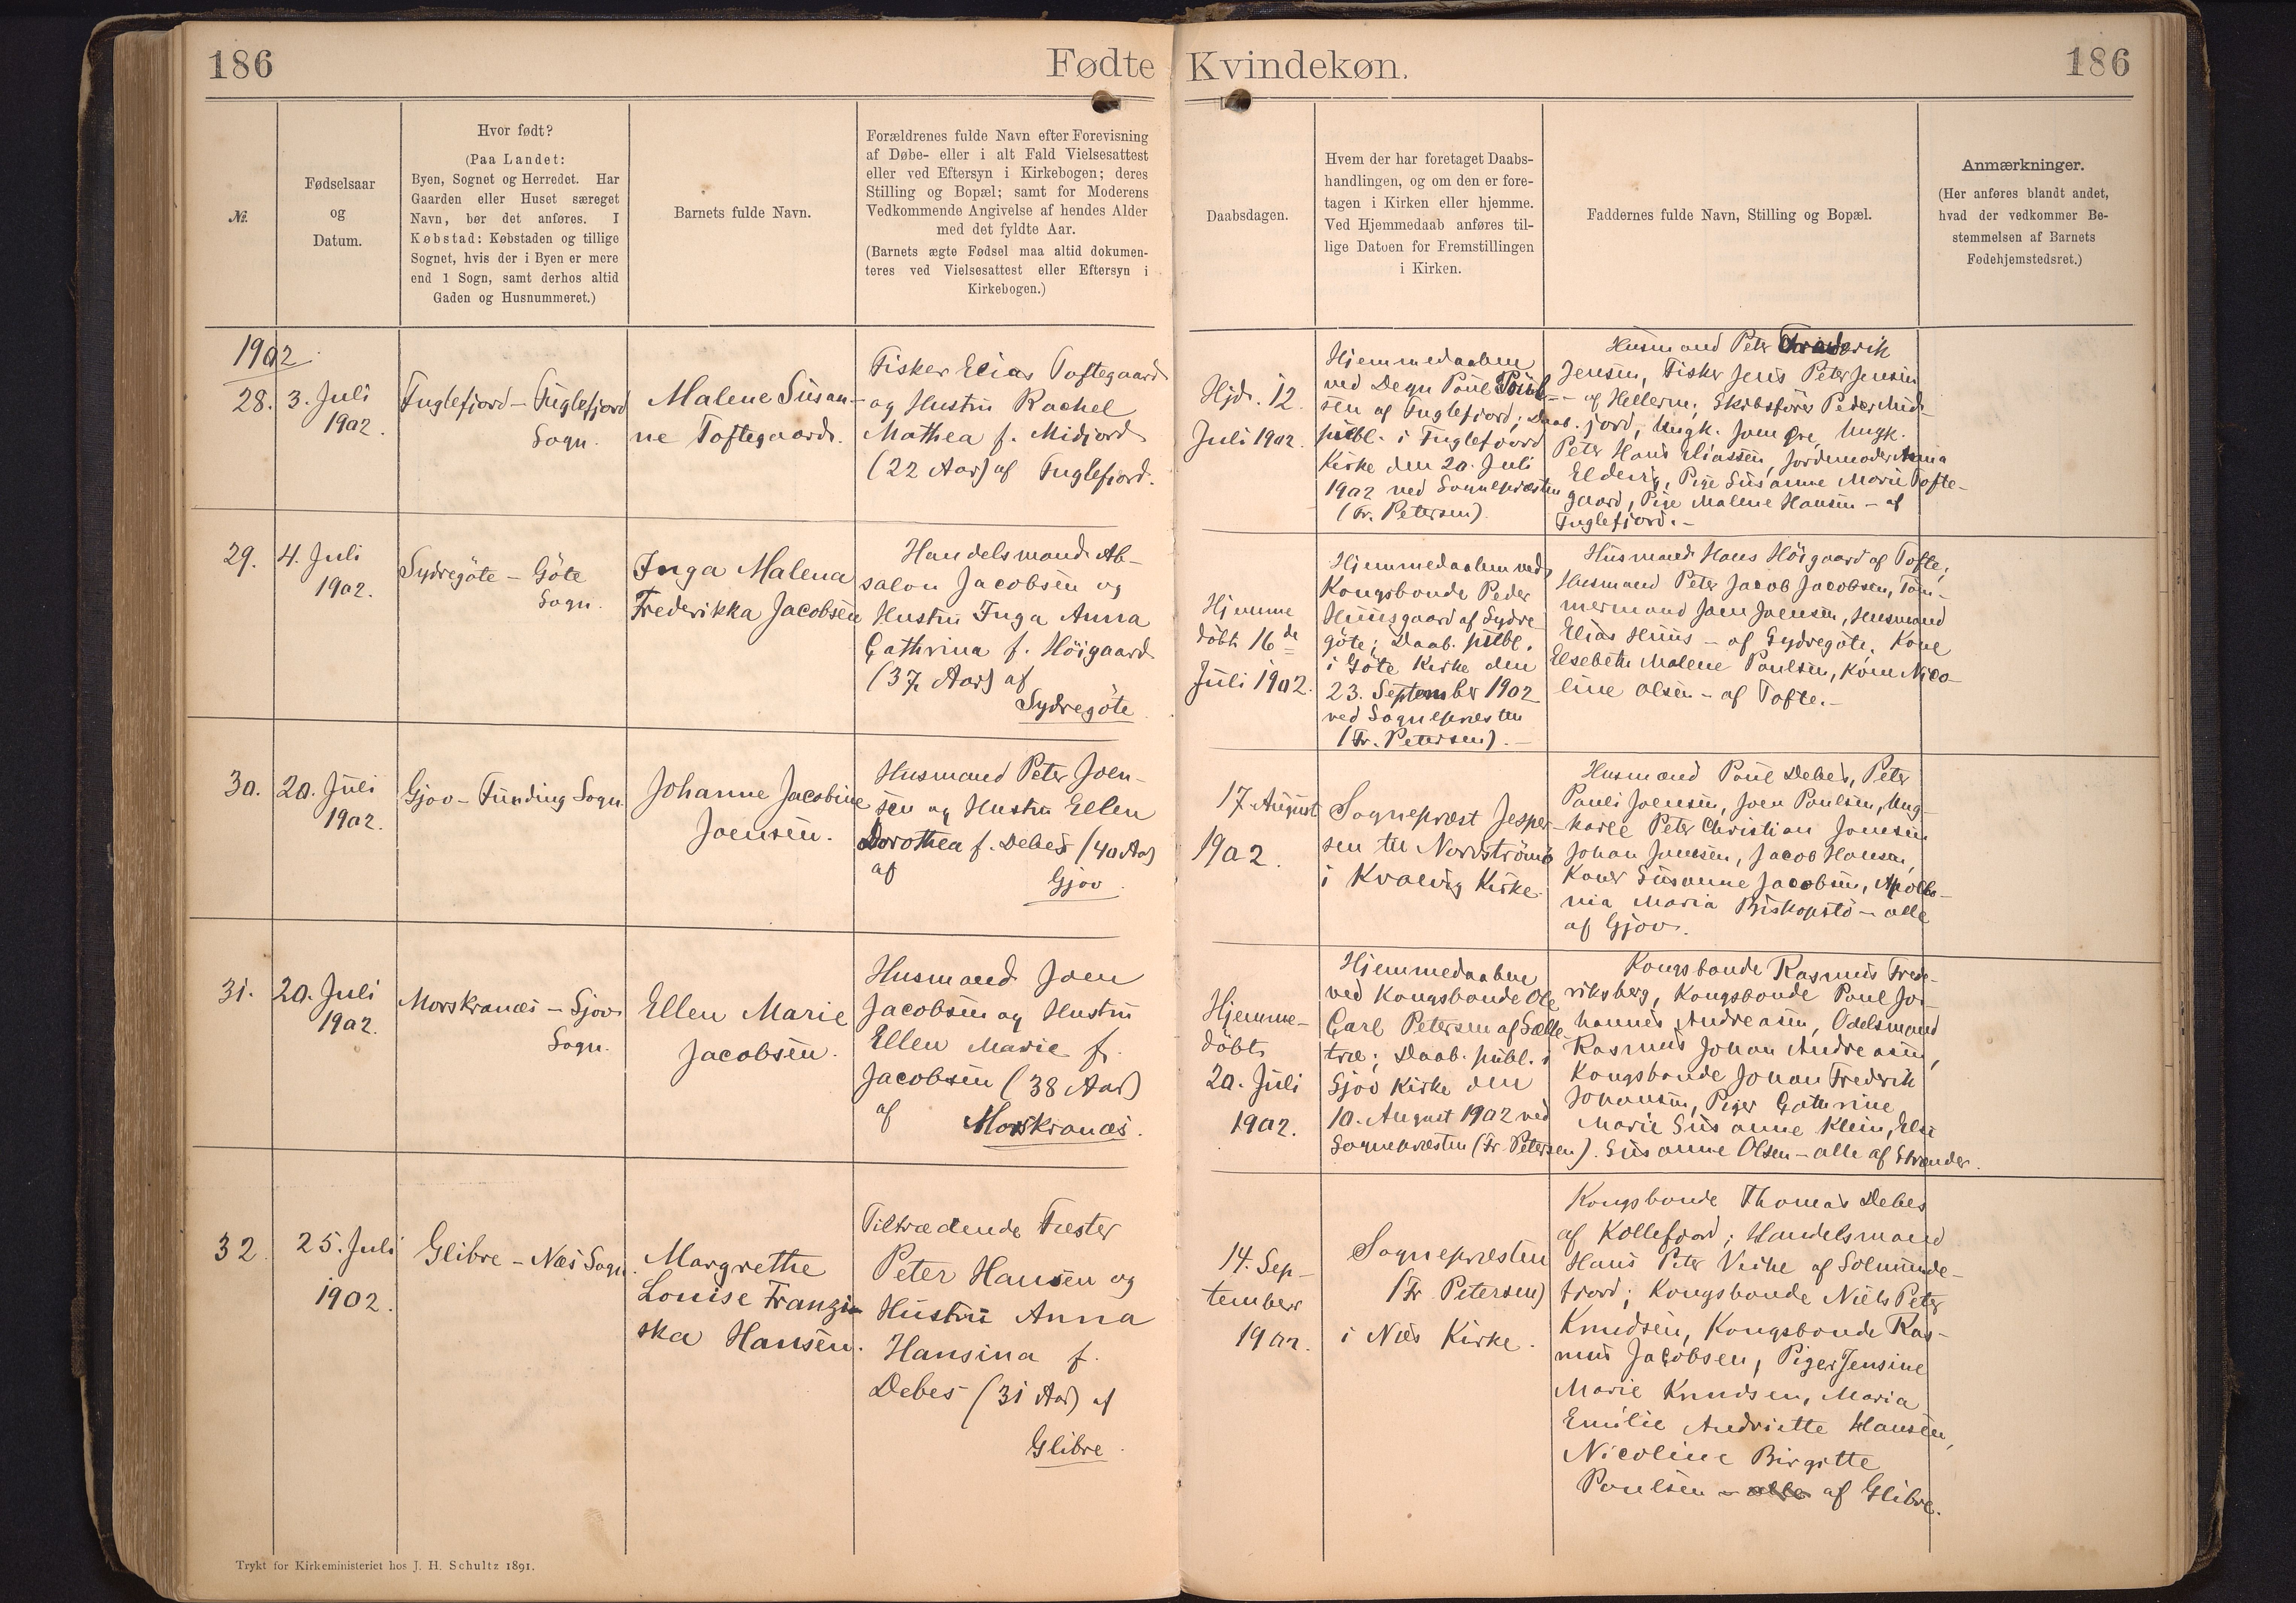 186
Fødte
Kvindekøn.
186
Nr.
Fødselsaar
og
Datum.
Hvor født?
(Paa Landet:
Byen, Sognet og Herredet. Har
Gaarden eller Huset særeget
Navn, bør det anføres. I
Købstad: Købstaden og tillige
Sognet, hvis der i Byen er mere
end 1 Sogn, samt derhos altid
Gaden og Husnummeret.)
Barnets fulde Navn.
Forældrenes fulde Navn efter Forevisning
af Døbe- eller i alt Fald Vielsesattest
eller ved Eftersyn i Kirkebogen; deres
Stilling og Bopæl; samt for Moderens
Vedkommende Angivelse af hendes Alder
med det fyldte Aar.
(Barnets ægte Fødsel maa altid dokumen-
teres ved Vielsesattest eller Eftersyn i
Kirkebogen.)
Daabsdagen.
Hvem der har foretaget Daabs-
handlingen, og om den er fore-
tagen i Kirken eller hjemme.
Ved Hjemmedaab anføres til-
lige Datoen for Fremstillingen
i Kirken.
Faddernes fulde Navn, Stilling og Bopæl.
Anmærkninger.
(Her anføres blandt andet,
hvad der vedkommer Be-
stemmelsen af Barnets
Fødehjemstedsret.)
1902
28.
3. Juli
1902.
Fuglefjord - Fuglefjord
Sogn.
Malene Susan-
ne Toftegaard.
Fisker Elias Toftegaard
og Hustru Rachel
Mathea f. Midjord
(22 Aar) af Fuglefjord.
Hjd. 12.
Juli 1902.
Hjemmedaaben
ved Degn Poul Poul-
sen af Fuglefjord; Daab.
publ. i Fuglefjord
Kirke den 20. Juli
1902 ved Sognepræsten
(Fr. Petersen).
Husmand Peter Frederik
Jensen, Fisker Jens Peter Jensen
- af Hellerne, Skibsfører Peder Mid-
jord, Ungk. Joen Øre, Ungk.
Peter Hans Eliassen, Jordemoder Anna
Eldevig, Pige Susanne Marie Tofte-
gaard, Pige Malene Hansen - af
Fuglefjord. -
29.
4. Juli
1902.
Sydregöte - Göte
Sogn.
Inga Malena
Frederikka Jacobsen
Handelsmand Ab-
salon Jacobsen og
Hustru Inga Anna
Cathrina f. Höigaard
(37 Aar) af
Sydregöte
Hjemme
döbt 16de
Juli 1902.
Hjemmedaaben ved
Kongsbonde Peder
Huusgaard af Sydre-
göte; Daab. publ.
i Göte Kirke den
23. September 1902
ved Sognepræsten
(Fr. Petersen). -
Husmand Hans Höigaard af Tofte,
Husmand Peter Jacob Jacobsen, Töm-
mermand Joen Joensen, Husmand
Elias Huus - af Sydregöte, Kone
Elsebeth Malene Poulsen, Kone Nico-
line Olsen - af Tofte. -
30.
20. Juli
1902.
Gjov - Funding Sogn
Johanne Jacobine
Joensen.
Husmand Peter Joen-
sen og Hustru Ellen
Dorothea f. Debes (40 Aar)
af
Gjov.
17. August
1902.
Sognepræst Jesper-
sen til Nordströmö
i Kvalvig Kirke.
Husmænd Poul Debes, Peter
Pauli Joensen, Joen Poulsen, Ung-
karle Peter Christian Joensen
Johan Jensen, Jacob Hansen,
Koner Susanne Jacobsen, Apollo-
nia Maria Biskopstö - alle
af Gjov.
31.
20. Juli
1902.
Morskranæs - Sjov
Sogn.
Ellen Marie
Jacobsen.
Husmand Joen
Jacobsen og Hustru
Ellen Marie f.
Jacobsen (38 Aar)
af
Morskranæs.
Hjemme-
döbt
20. Juli
1902.
Hjemmedaaben
ved Kongsbonde Ole
Carl Petersen af Sælle-
træ; Daab. publ. i
Sjov Kirke den
10. August 1902 ved
Sognepræsten (Fr. Petersen).
Kongsbonde Rasmus Frede-
riksberg, Kongsbonde Poul Jo-
hannes Andreasen, Odelsmand
Rasmus Johan Andreasen,
Kongsbonde Johan Frederik
Johansen, Piger Cathrine
Marie Susanne Klein, Else
Susanne Olsen - alle af Strænder.
32.
25. Juli
1902.
Glibre - Næs Sogn.
Margrethe
Louise Franzis-
ska Hansen.
Tiltrædende Fæster
Peter Hansen og
Hustru Anna
Hansina f.
Debes (31 Aar) af
Glibre.
14. Sep-
tember
1902.
Sognepræsten
(Fr. Petersen)
i Næs Kirke.
Kongsbonde Thomas Debes
af Kollefjord; Handelsmand
Hans Peter Veihe af Solmunde-
fjord; Kongsbonde Niels Peter
Knudsen, Kongsbonde Ras-
mus Jacobsen, Piger Jensine
Marie Knudsen, Maria
Emilie Andriette Hansen,
Nicoline Birgitte
Poulsen - alle af Glibre.
Trykt for Kirkeministeriet hos J. H. Schultz 1891.